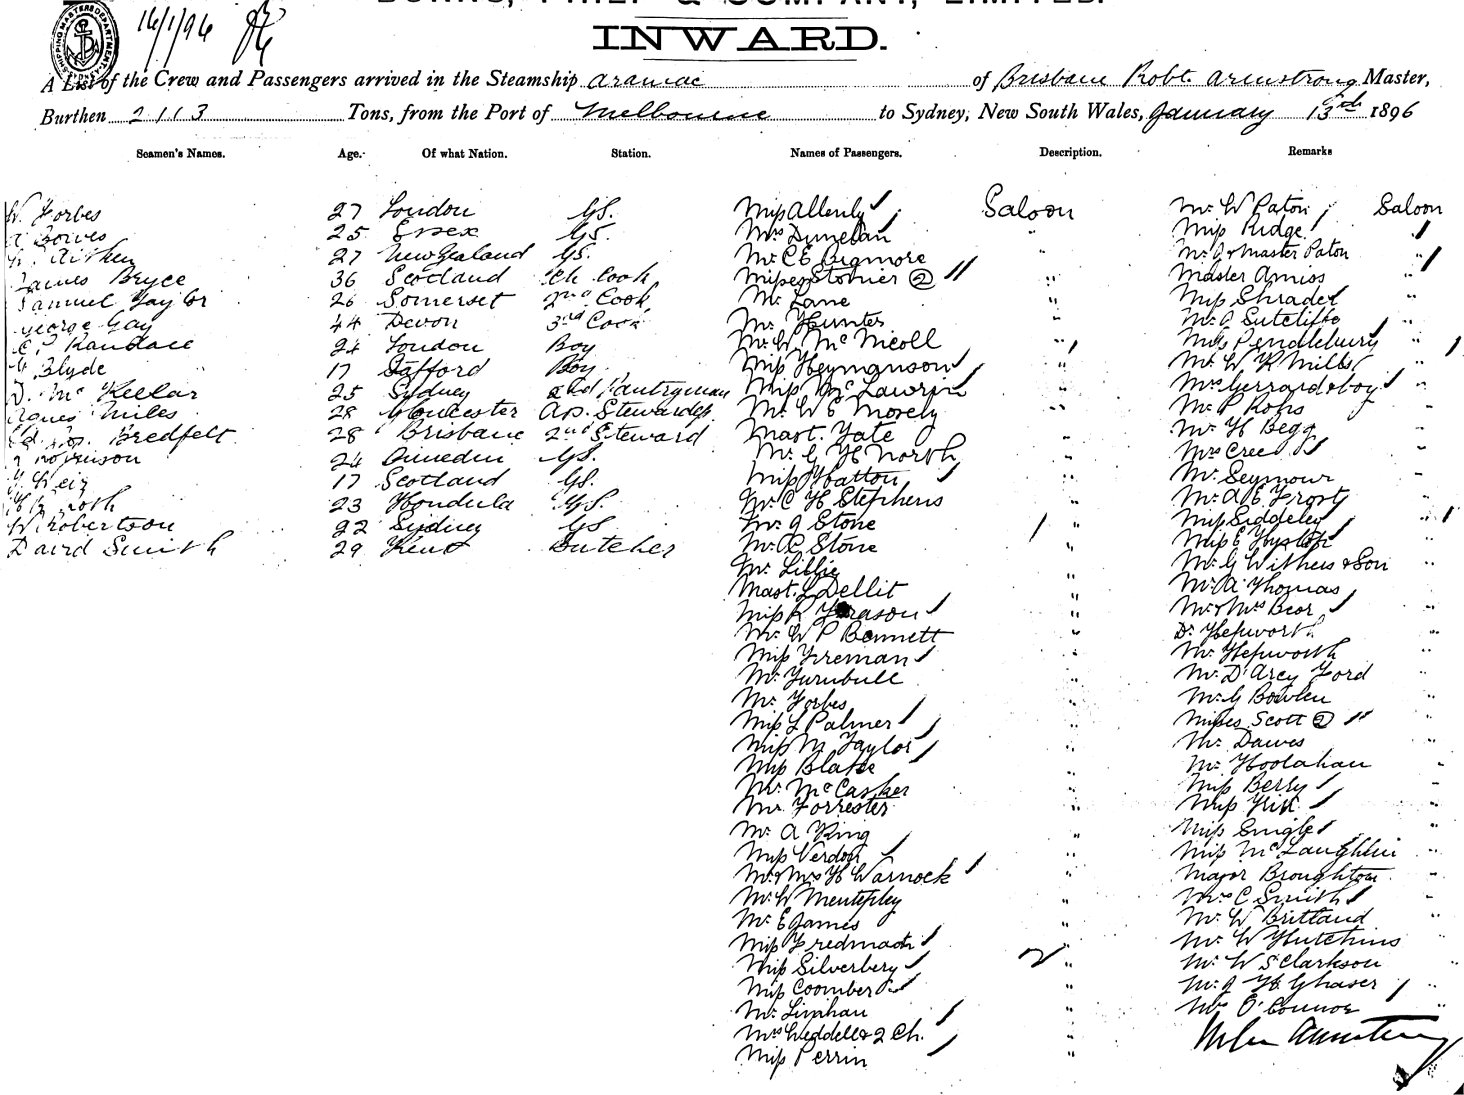 BURNS, PHILP & COMPANY, LIMITED.
16/1/96
INWARD.
A List of the Crew and Passengers arrived in the Steamship Aramac of Brisbane Robt Armstrong Master,
Burthen 2113 Tons, from the Port of Melbourne to Sydney, New South Wales, January 13th 1896
Seamen's Names. Age. Of what Nation. Station. Names of Passengers. Description. Remarks
W. Forbes 27 London GS. Miss Allenly Saloon Mr W Paton Saloon
Bowes 25 Essex GS. Mrs Dunetan " Miss Ridge "
Aitken 27 New Zealand GS. Mr C E Bigmore " Mr J & Master Paton "
James Bryce 36 Scotland Ch. Cook Misses Stonier 2 " Master Amiss "
Samuel Taylor 26 Somerset 2nd Cook Mr Lane " Miss Shrader "
George Gay 44 Devon 3rd Cook Mr Hunter " Mr A Sutcliffe "
Randall 24 London Boy Mr W. McNicoll " Miss Pendlebury "
Clyde 17 Stafford Boy Miss Heymanson " Mr W R Mills "
D. McKellar 25 Sydney 2nd Pantryman Miss McLawrin " Mrs Gerrard & boy "
Agnes Miles 28 Gloucester As. Stewardess Mr W E Morely " Mr P Rohs "
Bredfelt 28 Brisbane 2nd Steward Mast. Tate " Mr H Begg "
24 Dunedin GS. Mr G H North " Mrs Cree "
Weir 17 Scotland GS. Miss Hatton " Mr Seymour "
23 Hondula GS. Mr C H Stephens " Mr A E Frost "
W. Robertson 22 Sydney GS Mr J Stone " Miss Siddeley "
David Smith 29 Kent Butcher Mr R Stone " Miss E Hyslop "
Mr Lillie " Mr G Withers & Son "
Mast. L Dellit " Mr A Thomas "
Miss R " Mr & Mrs Beor "
Mr W P Bennett " Dr Hepworth "
Miss Freman " Mr Hepworth "
Mr Turnbull " Mr D'Arcy Ford "
Mr Forbes " Mr G Bowlen "
Miss L Palmer " Misses Scott 2 "
Miss M Taylor " Mr Dawes "
Miss Blake " Mr Hoolahan "
Mr McCasker " Miss Berry "
Mr Forrester " Miss Kirk "
Mr A King " Miss Single "
Miss Verdon " Miss McLaughlin "
Mr & Mrs H Warnock " Major Broughton "
Mr W Mentiplay " Mrs C Smith "
Mr E James " Mr W Brittand "
Miss Fredman " Mr W Hutchins "
Miss Silverberg " Mr W S Clarkson "
Miss Coomber " Mr J H Ghaser "
Mr Linhan " Mrs O'Connor "
Mrs Weddell & 2 Ch. "
Miss Perrin "